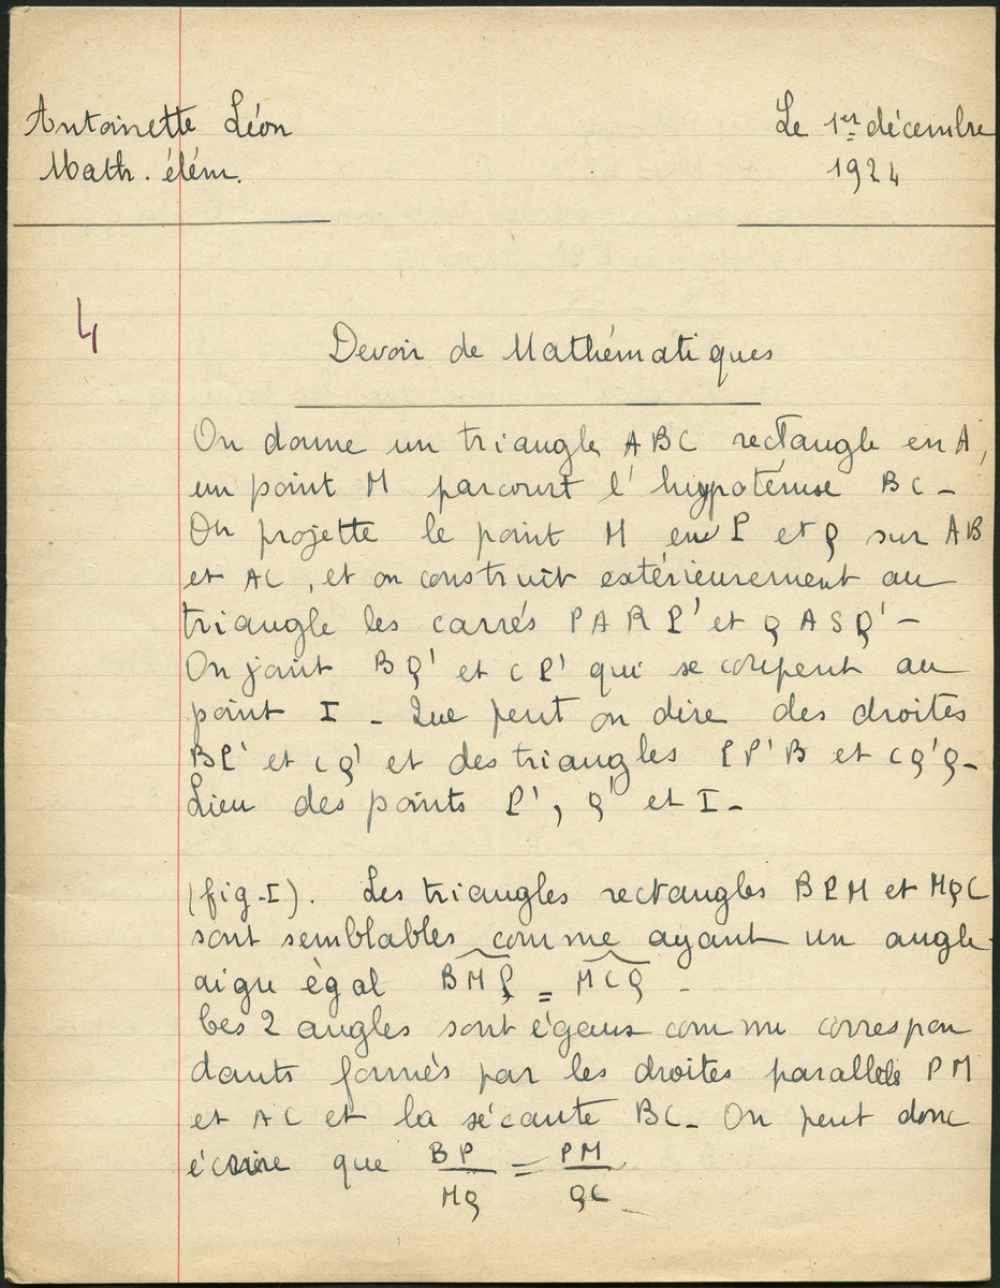 Antoinette Léon
Le 1er décembre
Math. élém.
1924
4
Devoir de Mathématiques
On donne un triangle ABC rectangle en A,
un point M parcourt l'hypoténuse BC -
On projette le point M en P et Q sur AB
et AC, et on construit extérieurement au
triangle les carrés PARP' et QASQ' -
On joint BQ' et CP' qui se coupent au
point I - Que peut on dire des droites
BP' et CQ' et des triangles PP'B et CQ'Q -
Lieu des points P', Q' et I -
(fig-I). Les triangles rectangles BPM et MQC
sont semblables comme ayant un angle
aigu égal BMP = MCQ -
Ces 2 angles sont égaux comme correspon
dants formés par les droites parallèles PM
et AC et la sécante BC - On peut donc
écrire que BP/MQ = PM/QC -